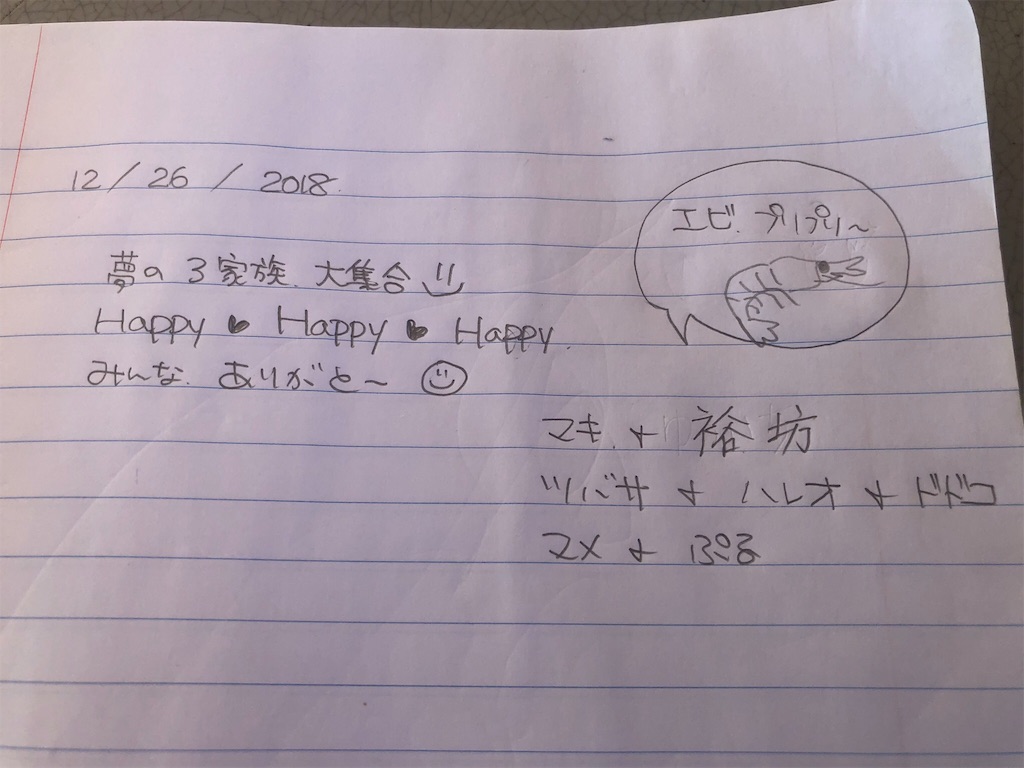 12/26/2018.
エビ. プリプリ〜
夢の3家族. 大集合
Happy ♥ Happy ♥ Happy.
みんな. ありがと〜
マキ + 裕坊
ツバサ + ハレオ + ドドコ
マメ + ぷる